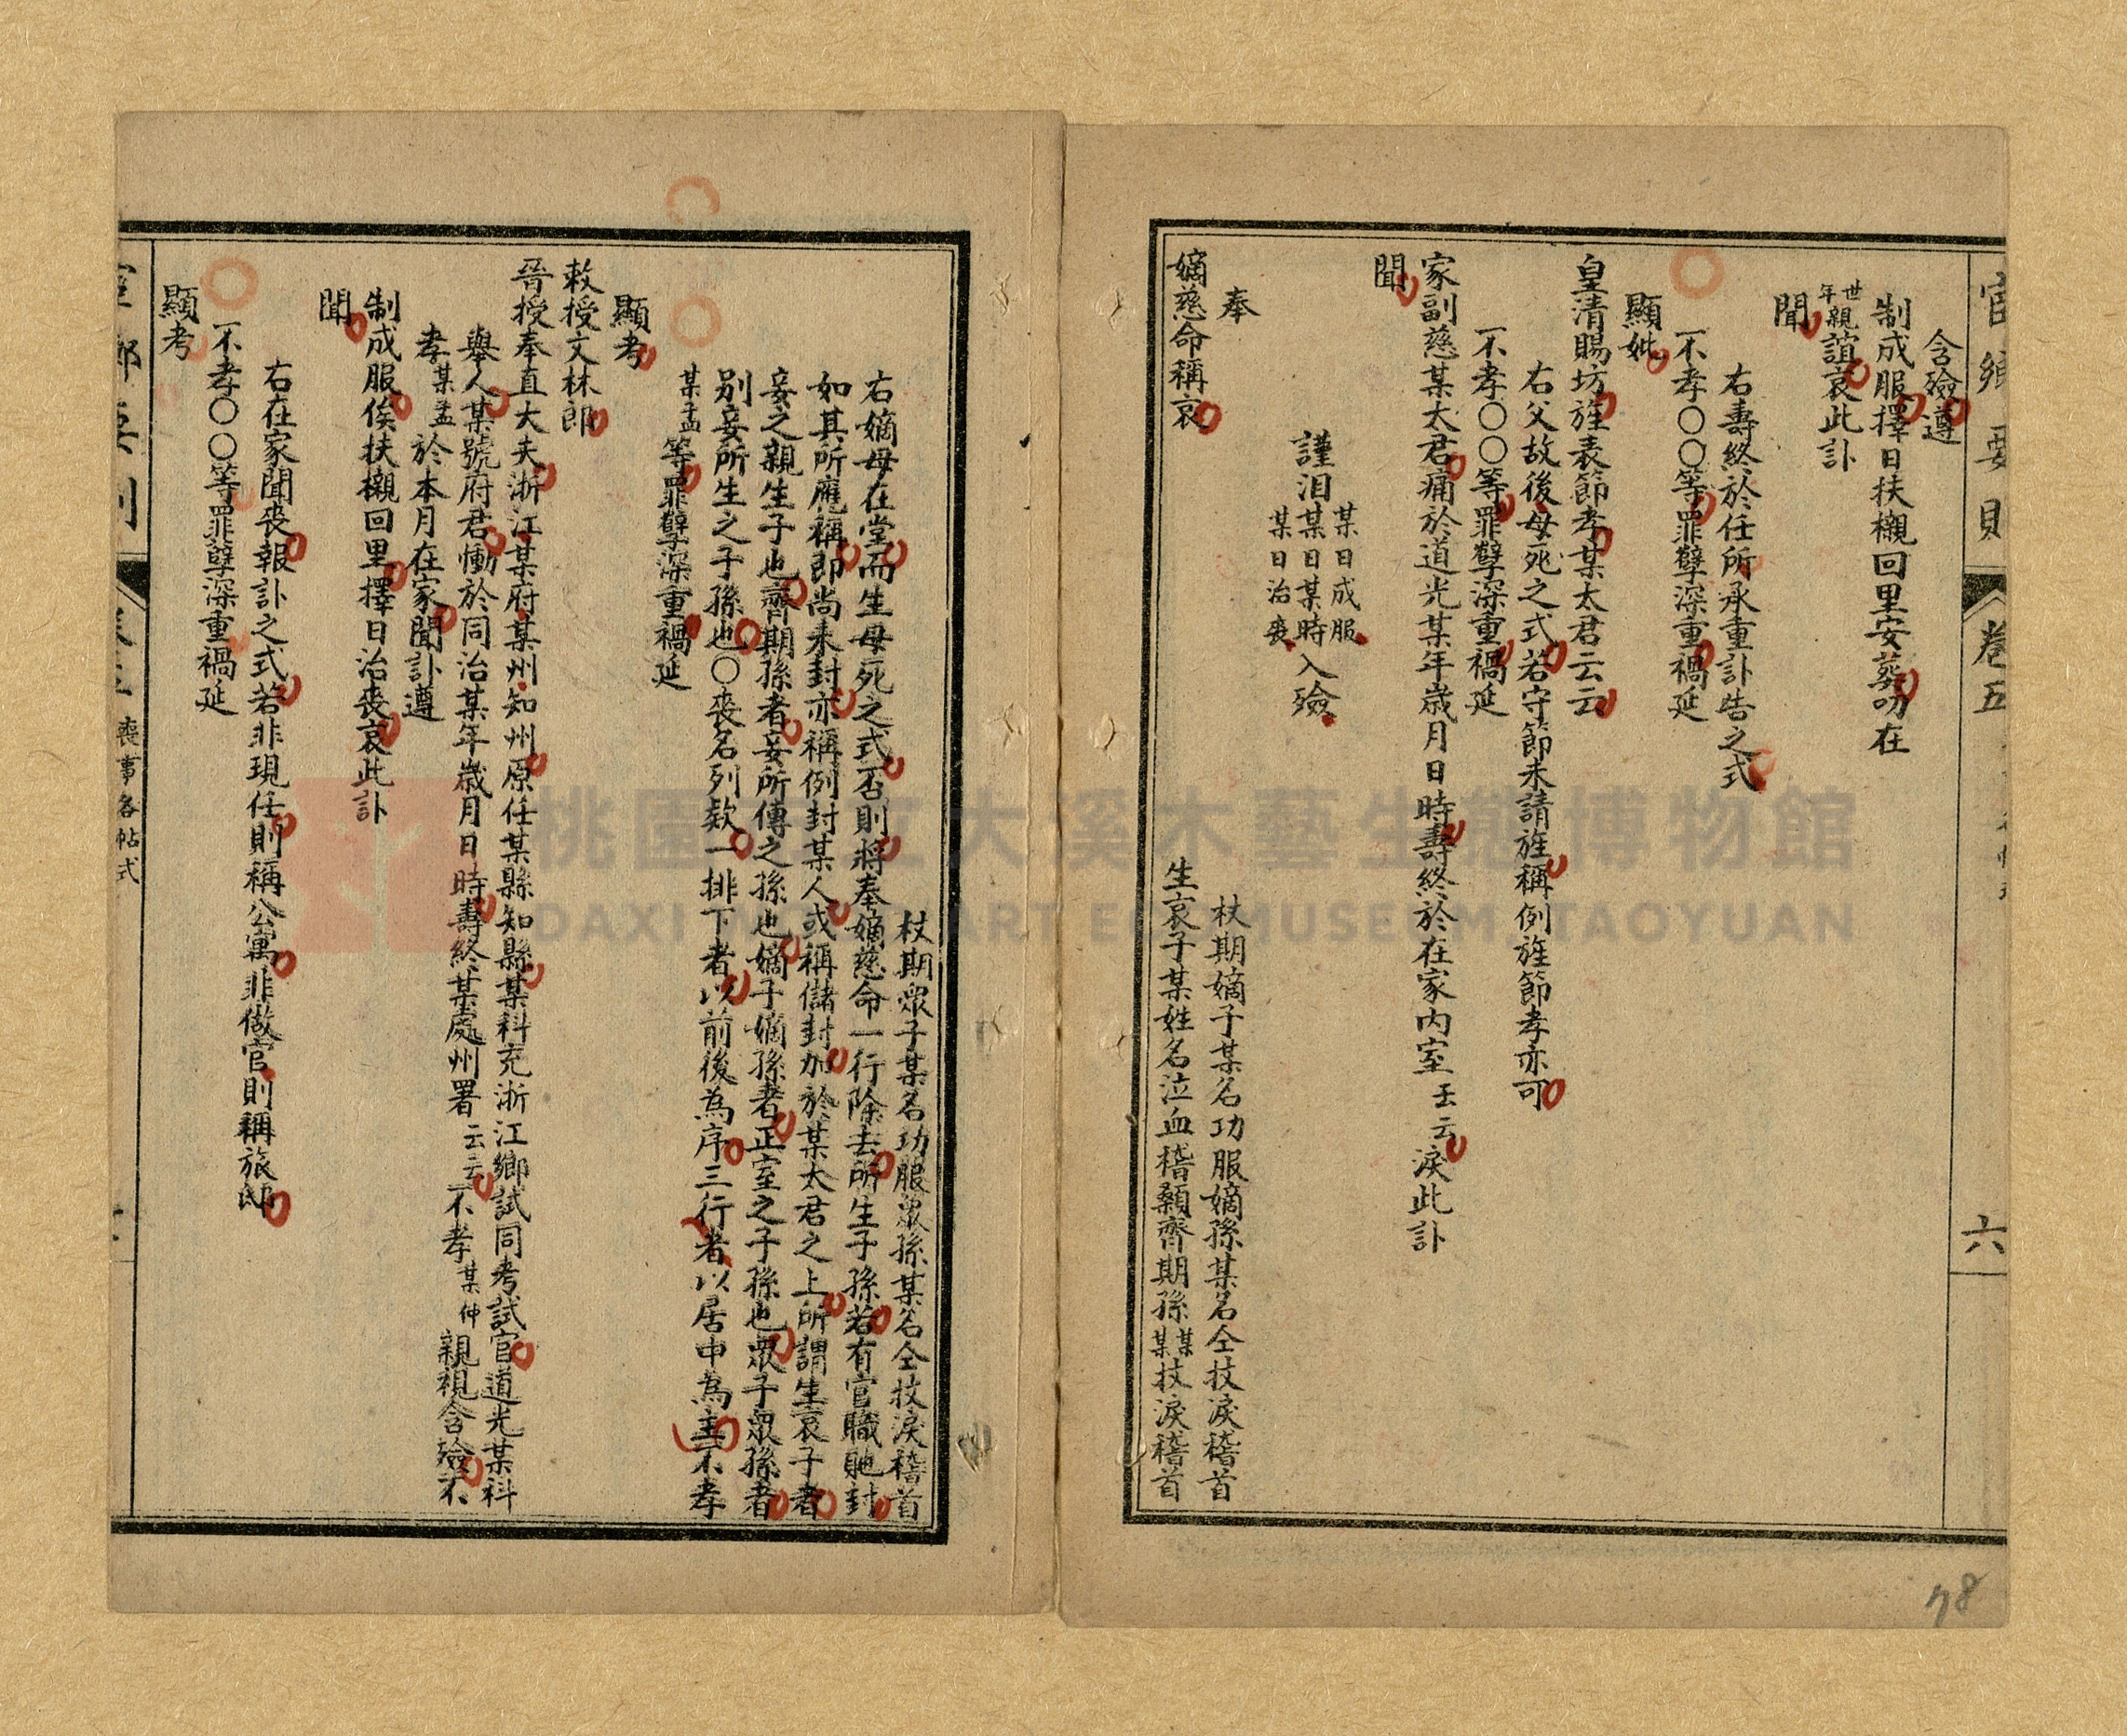 官鄉要則
卷五
六
含殮遵
制成服擇日扶櫬回里安葬叨在
世年親誼哀此訃
聞
右壽終於任所承重訃告之式
不孝〇〇等罪孽深重禍延
顯妣
皇清賜坊旌表節孝某太君云云
右父故後母死之式若守節未請旌稱例旌節孝亦可
不孝〇〇等罪孽深重禍延
家副慈某太君痛於道光某年歲月日時壽終於在家內室云云淚此訃
聞
某日成服
謹泪某日某時入殮
某日治喪
奉 杖期嫡子某名功服嫡孫某名仝抆淚稽首
嫡慈命稱哀 生哀子某姓名泣血稽顙齊期孫某某抆淚稽首
杖期眾子某名功服眾孫某名仝抆淚稽首
右嫡母在堂而生母死之式否則將奉嫡慈命一行除去所生子孫若有官職貤封
如其所應稱即尚未封亦稱例封某人或稱儲封加於某太君之上所謂生哀子者
妾之親生子也齊期孫者妾所傳之孫也嫡子嫡孫者正室之子孫也眾子眾孫者
別妾所生之子孫也〇喪名列欵一排下者以前後為序三行者以居中為主不孝
某孟等罪孽深重禍延
顯考
敕授文林郎
晉授奉直大夫浙江某府某州知州原任某縣知縣某科充浙江鄉試同考試官道光某科
舉人某號府君慟於同治某年歲月日時壽終某處州署云云不孝某仲親視含殮不
孝某孟於本月在家聞訃遵
制成服俟扶櫬回里擇日治喪哀此訃
聞
右在家聞喪報訃之式若非現任則稱公寓非做官則稱旅邸
不孝〇〇等罪孽深重禍延
顯考
喪事各帖式
桃園 大溪木藝生態博物館
DAXI WOOD ART ECOMUSEUM, TAOYUAN
78